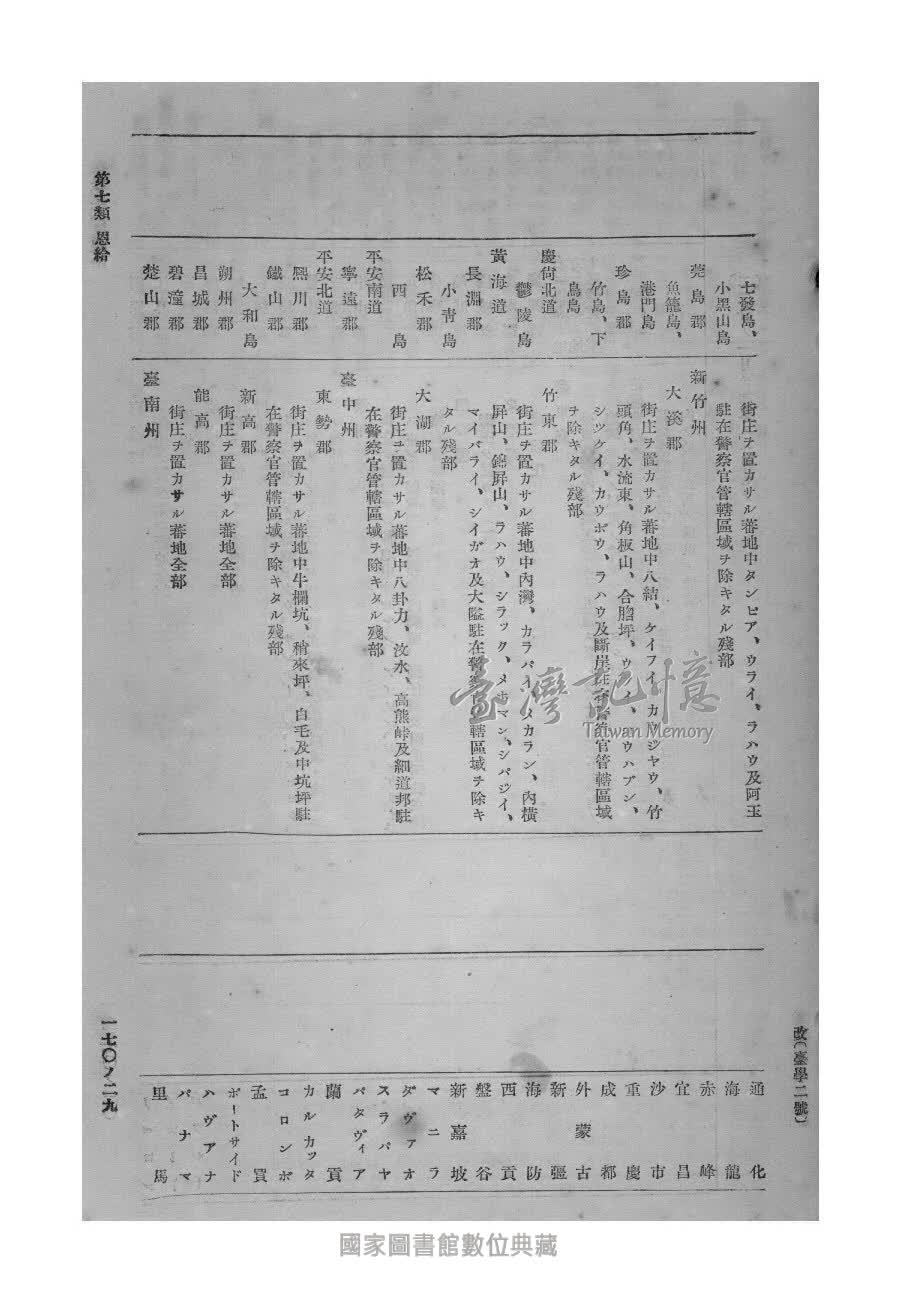 改(臺學二號)
七發島、
小黑山島
莞島郡
魚龍島、
港門島
珍島郡
竹島、下
鳥島
慶尙北道
鬱陵島
黃海道
長淵郡
小靑島
松禾郡
西島
平安南道
寧遠郡
平安北道
熙川郡
鐵山郡
大和島
朔州郡
昌城郡
碧潼郡
楚山郡
街庄ヲ置カサル蕃地中タンピア、ウライ、ラハウ及阿玉
駐在警察官管轄區域ヲ除キタル殘部
新竹州
大溪郡
街庄ヲ置カサル蕃地中八結、ケイフイ、カウジヤウ、竹
頭角、水流東、角板山、合脗坪、
シツケイ、カウボウ、ラハウ及斷崖駐在警察官管轄區域
ヲ除キタル殘部
竹東郡
街庄ヲ置カサル蕃地中內灣、カラパイ、メカラン、內橫
屛山、錦屛山、ラハウ、シラック、メホマン、シバジイ、
マイバライ、シイガオ及大隘駐在警察官管轄區域ヲ除キ
タル殘部
大湖郡
街庄ヲ置カサル蕃地中八卦力、汶水、高熊峠及細道邦駐
在警察官管轄區域ヲ除キタル殘部
臺中州
東勢郡
街庄ヲ置カサル蕃地中牛欄坑、稍來坪、白毛及中坑坪駐
在警察官管轄區域ヲ除キタル殘部
新高郡
街庄ヲ置カサル蕃地全部
能高郡
街庄ヲ置カサル蕃地全部
臺南州
通化
海龍
赤峰
宜昌
沙市
重慶
成都
外蒙古
新疆
海防
西貢
盤谷
新嘉坡
マニラ
ダヴァオ
スラバヤ
バタヴィア
蘭貢
カルカッタ
コロンボ
孟買
ポートサイド
ハヴアナ
パナマ
里馬
第七類 恩給
一七〇ノ二九
臺灣記憶
Taiwan Memory
國家圖書館數位典藏